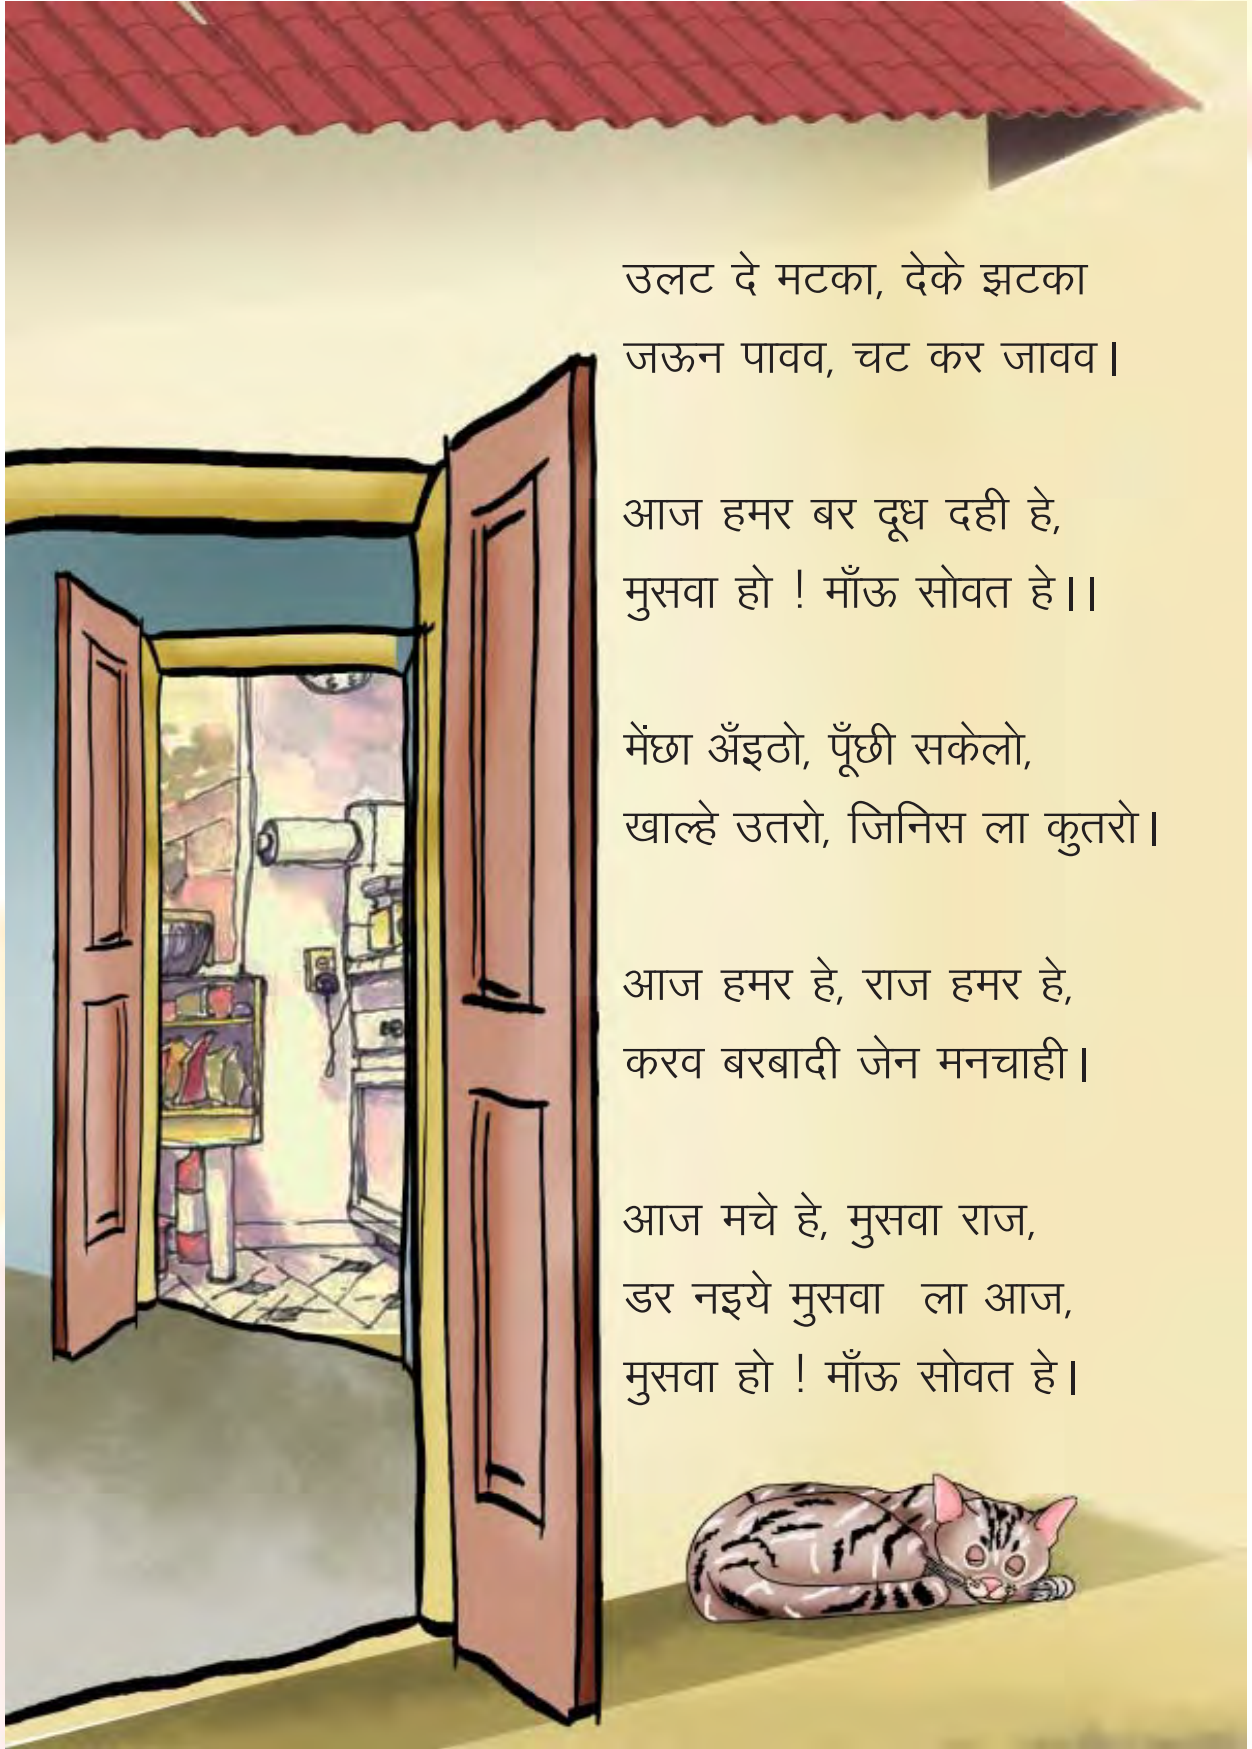 उलट दे मटका, देके झटका
जऊन पावव, चट कर जावव।
आज हमर बर दूध दही हे,
मुसवा हो ! माँऊ सोवत हे।।
मेंछा अँइठो, पूँछी सकेलो,
खाल्हे उतरो, जिनिस ला कुतरो।
आज हमर हे, राज हमर हे,
करव बरबादी जेन मनचाही।
आज मचे हे, मुसवा राज,
डर नइये मुसवा ला आज,
मुसवा हो ! माँऊ सोवत हे।